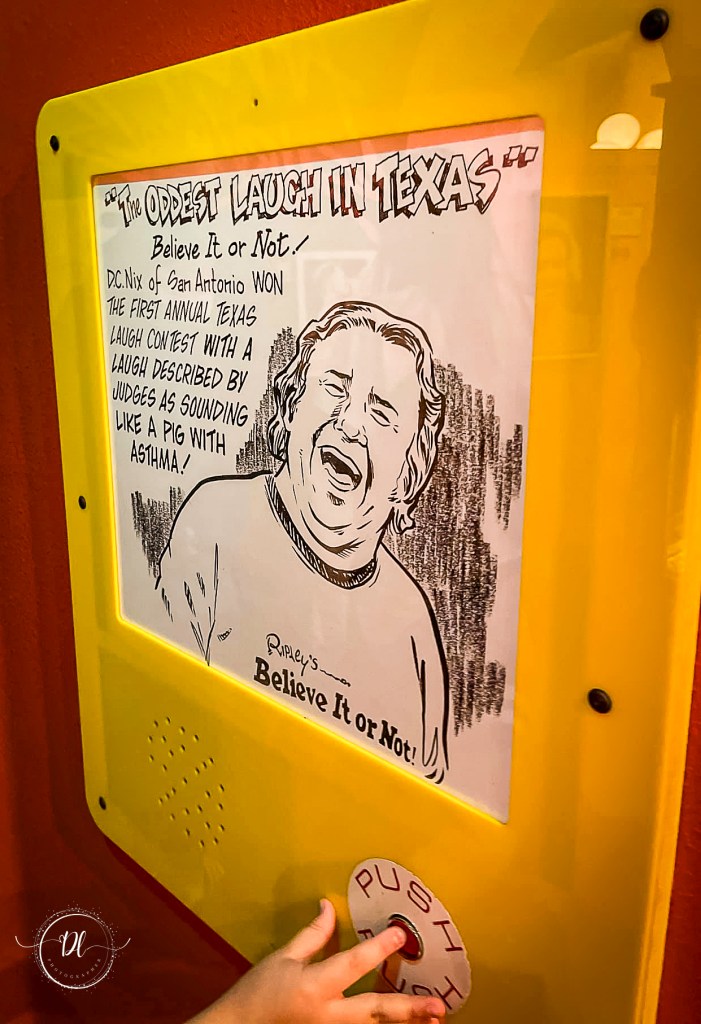 "The ODDEST LAUGH IN TEXAS"
Believe It or Not!
D.C. Nix of San Antonio WON
THE FIRST ANNUAL TEXAS
LAUGH CONTEST WITH A
LAUGH DESCRIBED BY
JUDGES AS SOUNDING
LIKE A PIG WITH
ASTHMA!
Ripley's
Believe It or Not!
PUSH
PUSH
DL
PHOTOGRAPHER